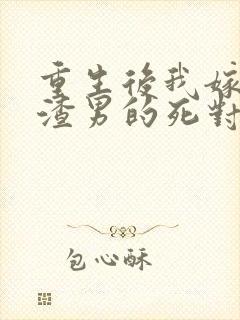 重生後我嫁
渣男的死對
包心酥